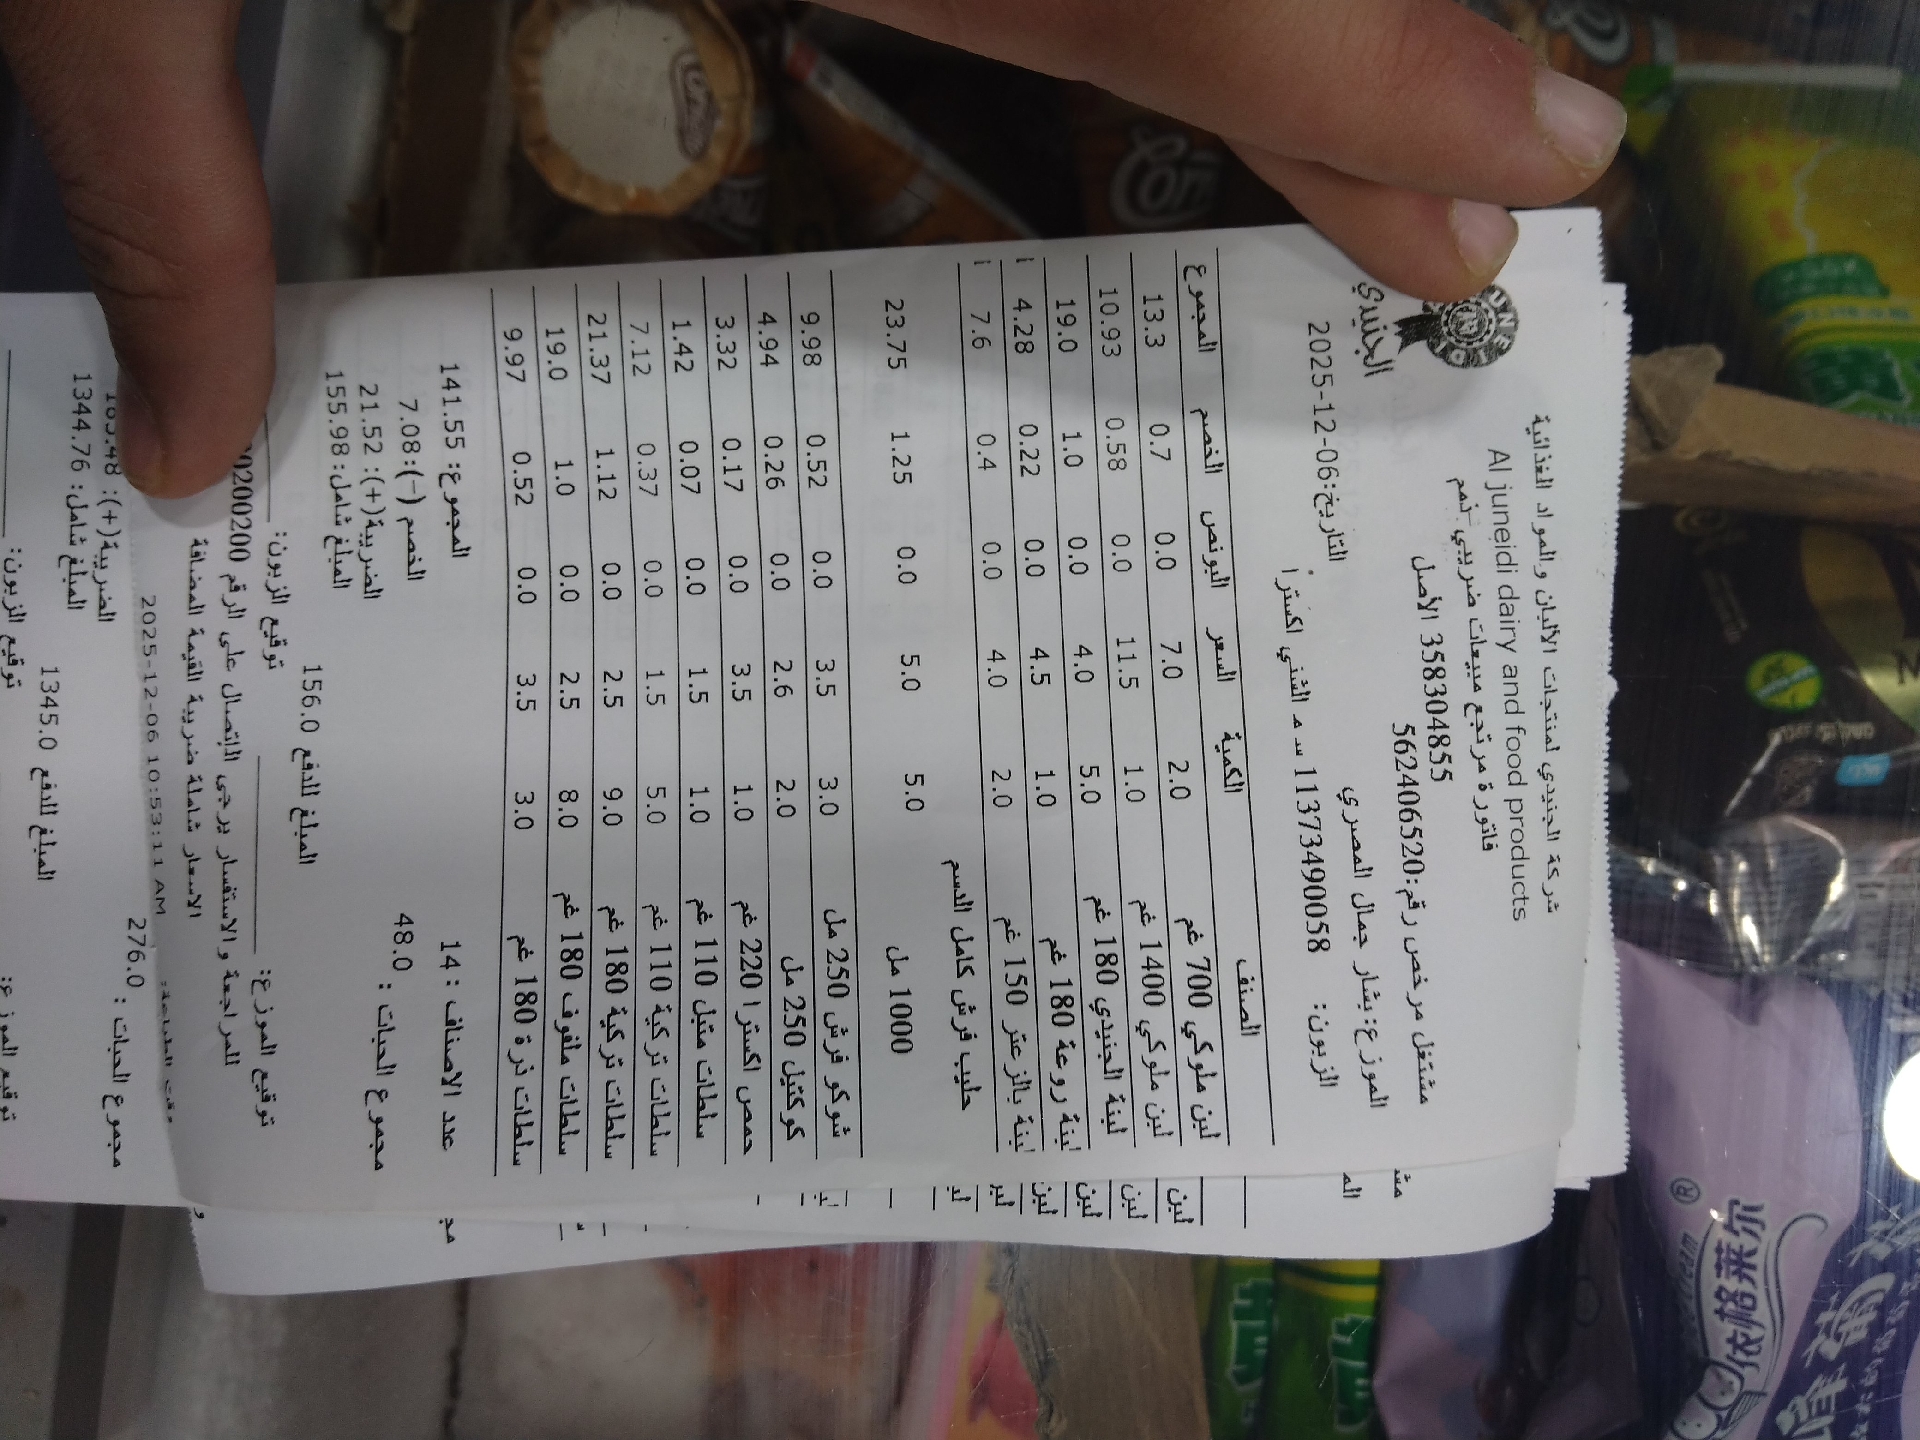 شركة الجنيدي لمنتجات الألبان والمواد الغذائية
Al juneidi dairy and food products
فاتورة مرتجع مبيعات ضريبي ذمم
358304855 الأصل
مشتغل مرخص رقم:562406520
الجنيدي
الموزع: بشار جمال المصري
التاريخ:2025-12-06
الزبون: 11373490058 س م الشني اكسترا
الصنف الكمية السعر البونص الخصم المجموع
لبن ملوكي 700 غم 2.0 7.0 0.0 0.7 13.3
لبن ملوكي 1400 غم 1.0 11.5 0.0 0.58 10.93
لبنة الجنيدي 180 غم 5.0 4.0 0.0 1.0 19.0
لبنة روعة 180 غم 1.0 4.5 0.0 0.22 4.28
لبنة بالزعتر 150 غم 2.0 4.0 0.0 0.4 7.6
حليب فرش كامل الدسم
1000 مل 5.0 5.0 0.0 1.25 23.75
شوكو فرش 250 مل 3.0 3.5 0.0 0.52 9.98
كوكتيل 250 مل 2.0 2.6 0.0 0.26 4.94
حمص اكسترا 220 غم 1.0 3.5 0.0 0.17 3.32
سلطات متبل 110 غم 1.0 1.5 0.0 0.07 1.42
سلطات تركية 110 غم 5.0 1.5 0.0 0.37 7.12
سلطات تركية 180 غم 9.0 2.5 0.0 1.12 21.37
سلطات ملفوف 180 غم 8.0 2.5 0.0 1.0 19.0
سلطات ذرة 180 غم 3.0 3.5 0.0 0.52 9.97
عدد الاصناف : 14 المجموع: 141.55
مجموع الحبات : 48.0 الخصم (-):7.08
الضريبة(+): 21.52
المبلغ شامل: 155.98
المبلغ للدفع 156.0
توقيع الموزع: توقيع الزبون:
للمراجعة والاستفسار يرجى الاتصال على الرقم
الاسعار شاملة ضريبة القيمة المضافة
2025-12-06 10:53:11 AM
مجموع الحبات : 276.0 الضريبة(+):
المبلغ شامل: 1344.76
المبلغ للدفع 1345.0
توقيع الموزع: توقيع الزبون:
依格莱尔